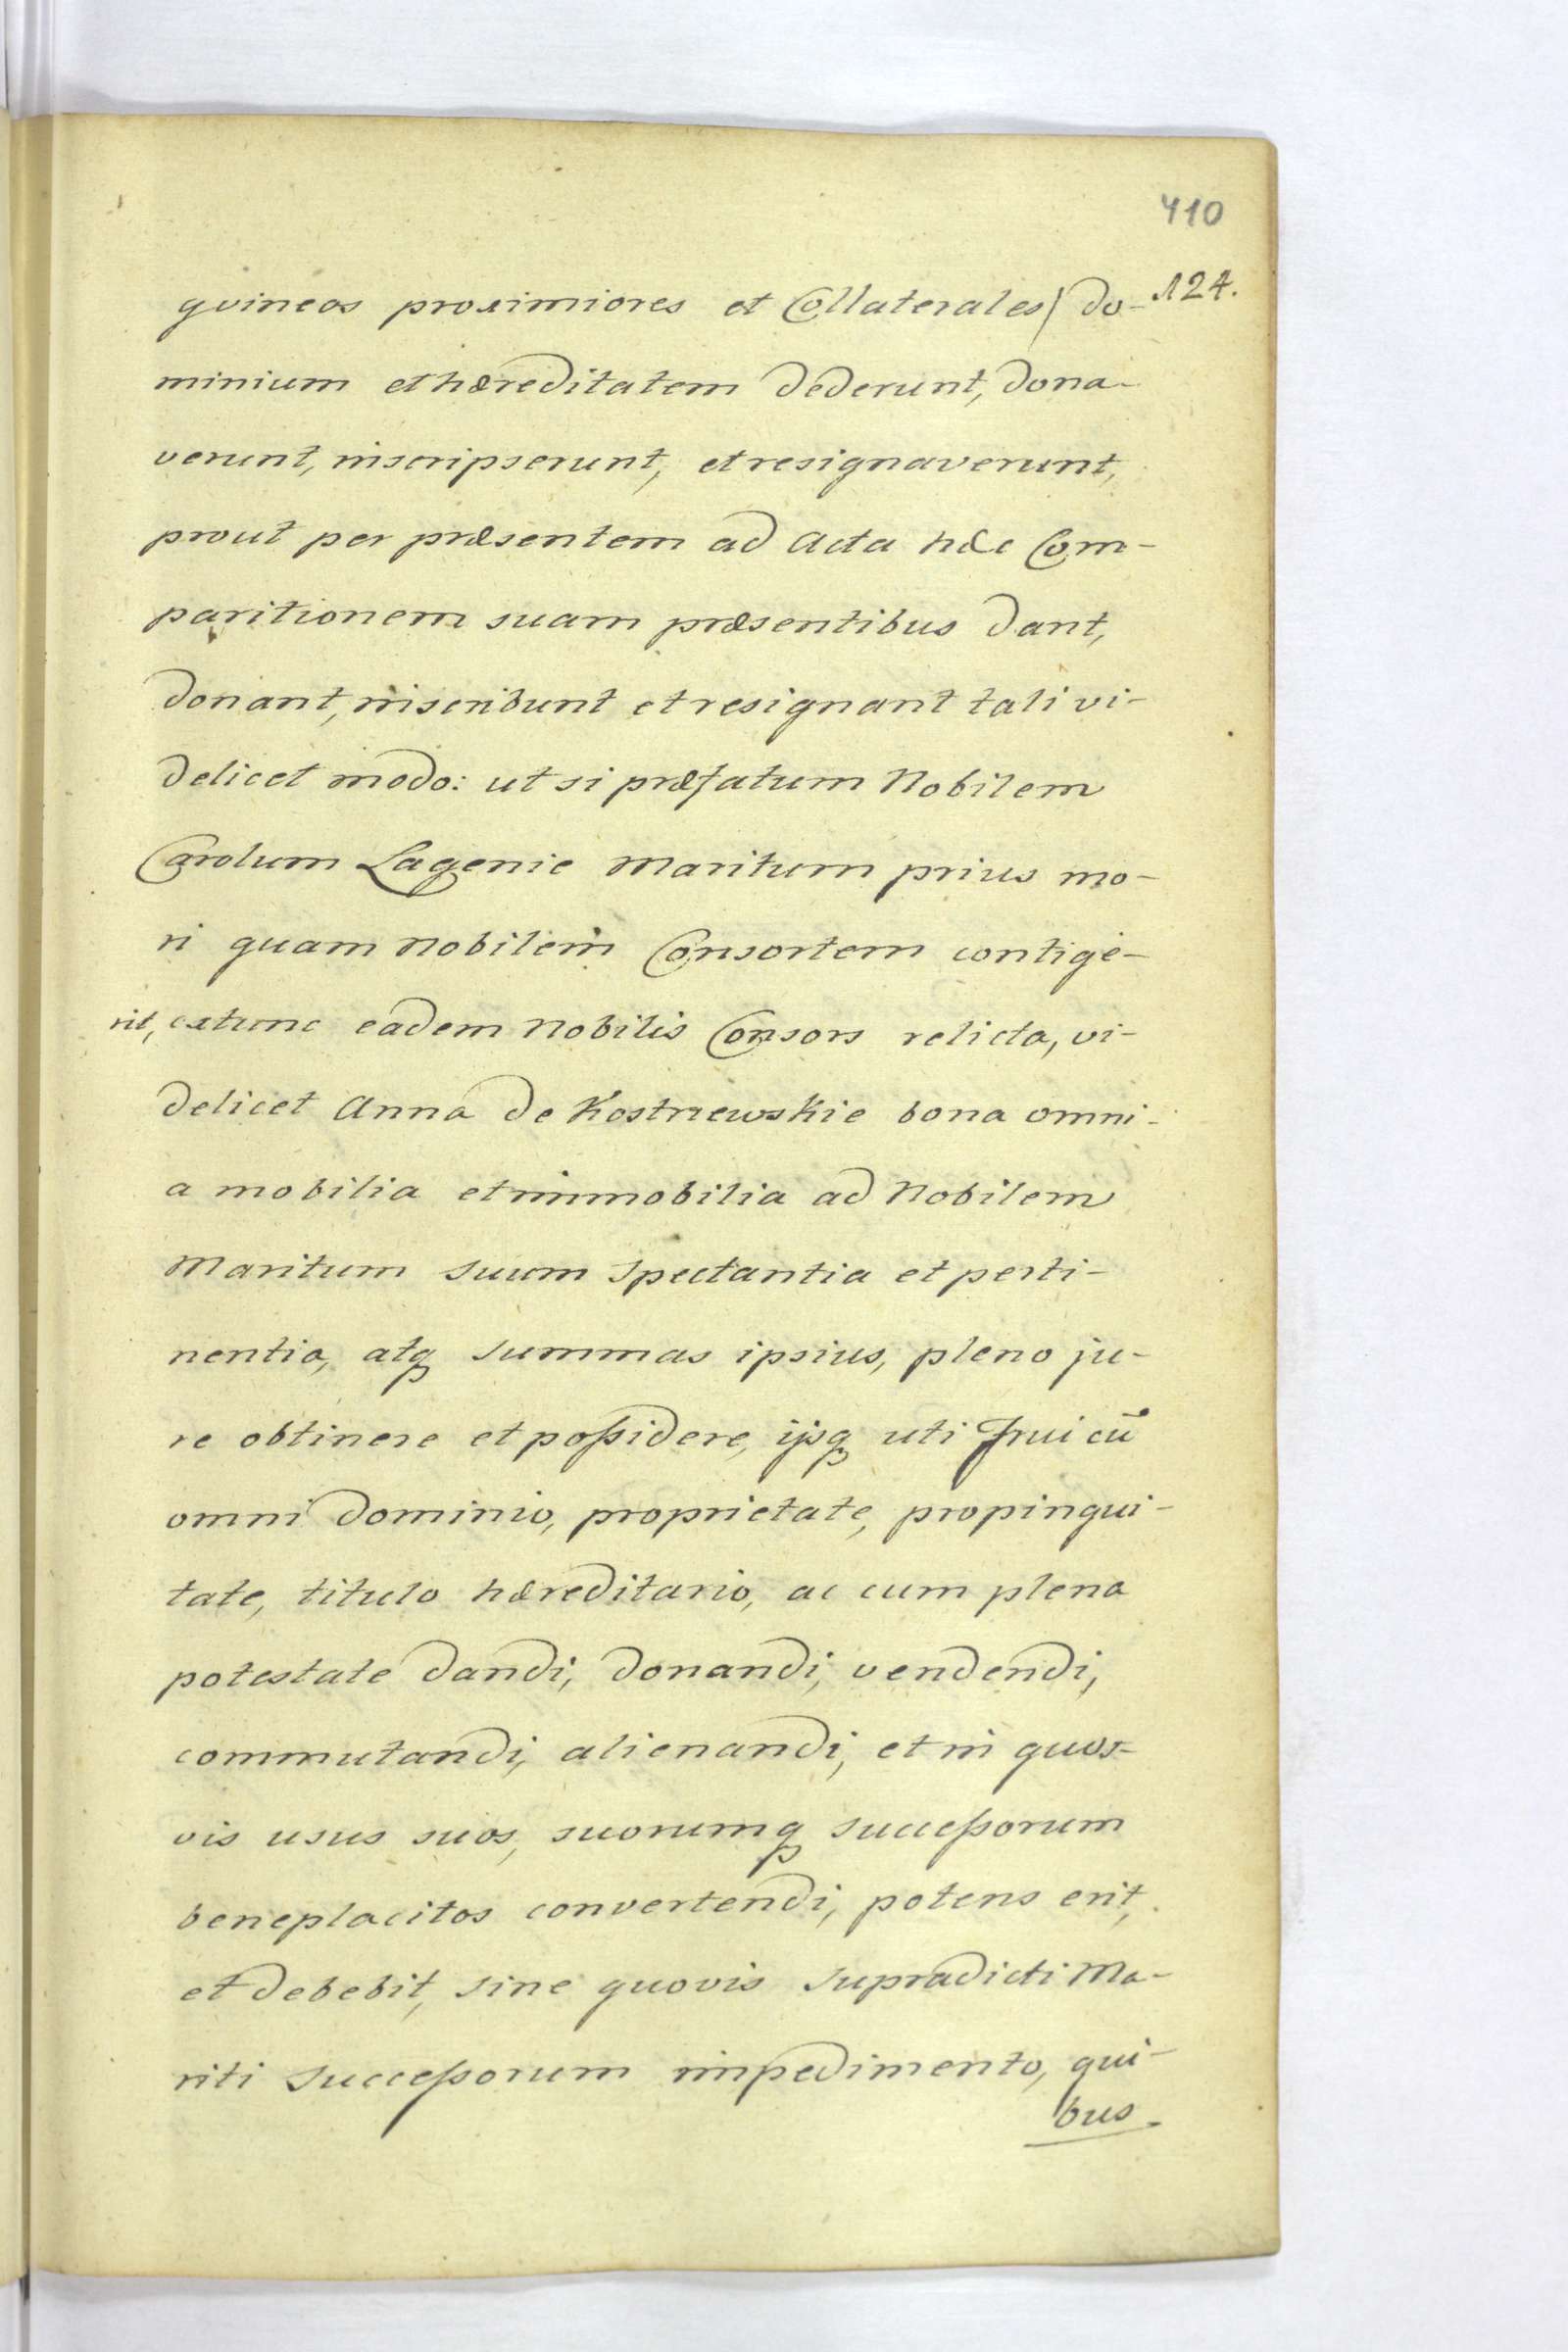 410
124.
guineos proximiores et Collaterales/ do-
minium et hæreditatem dederunt, dona-
verunt, inscripserunt, et resignaverunt,
prout per præsentem ad Acta hæc Com-
paritionem suam præsentibus dant,
donant, inscribunt et resignant tali vi-
delicet modo: ut si præfatum Nobilem
Carolum Lagenie Maritum prius mo-
ri quam Nobilem Consortem contige-
rit, extunc eadem Nobilis Consors relicta, vi-
delicet Anna de Kostrzewskie bona omni-
a mobilia et immobilia ad Nobilem
Maritum suum spectantia et perti-
nentia, atq summas ipsius, pleno ju-
re obtinere et poßidere, ijsq uti frui cū
omni dominio, proprietate, propinqui-
tate, titulo hæreditario, ac cum plena
potestate dandi, donandi, vendendi,
commutandi, alienandi, et in quos-
vis usus suos, suorumq succeßorum
beneplacitos convertendi, potens erit,
et debebit, sine quovis supradicti Ma-
riti Succeßorum impedimento, qui-
bus